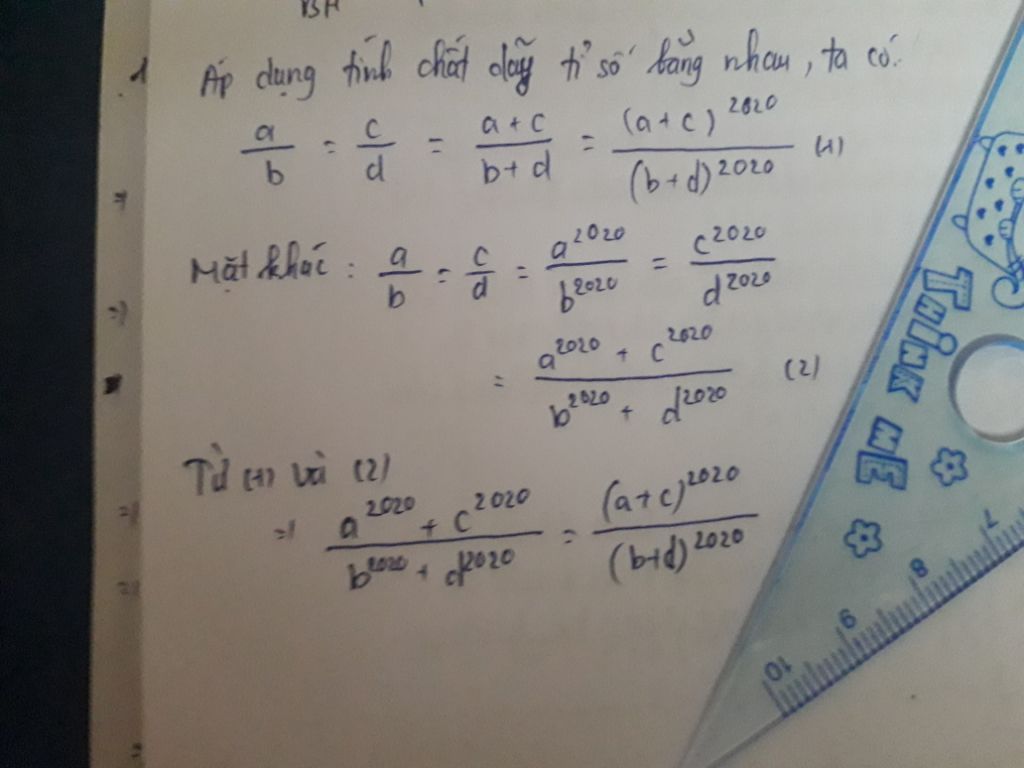 BH
1 Áp dụng tính chất dãy tỉ số bằng nhau, ta có:
a/b = c/d = (a+c)/(b+d) = (a+c)^2020/(b+d)^2020 (1)
Mặt khác: a/b = c/d = a^2020/b^2020 = c^2020/d^2020
= (a^2020 + c^2020)/(b^2020 + d^2020) (2)
Từ (1) và (2)
=> (a^2020 + c^2020)/(b^2020 + d^2020) = (a+c)^2020/(b+d)^2020
THINK ME
7 8 9 10